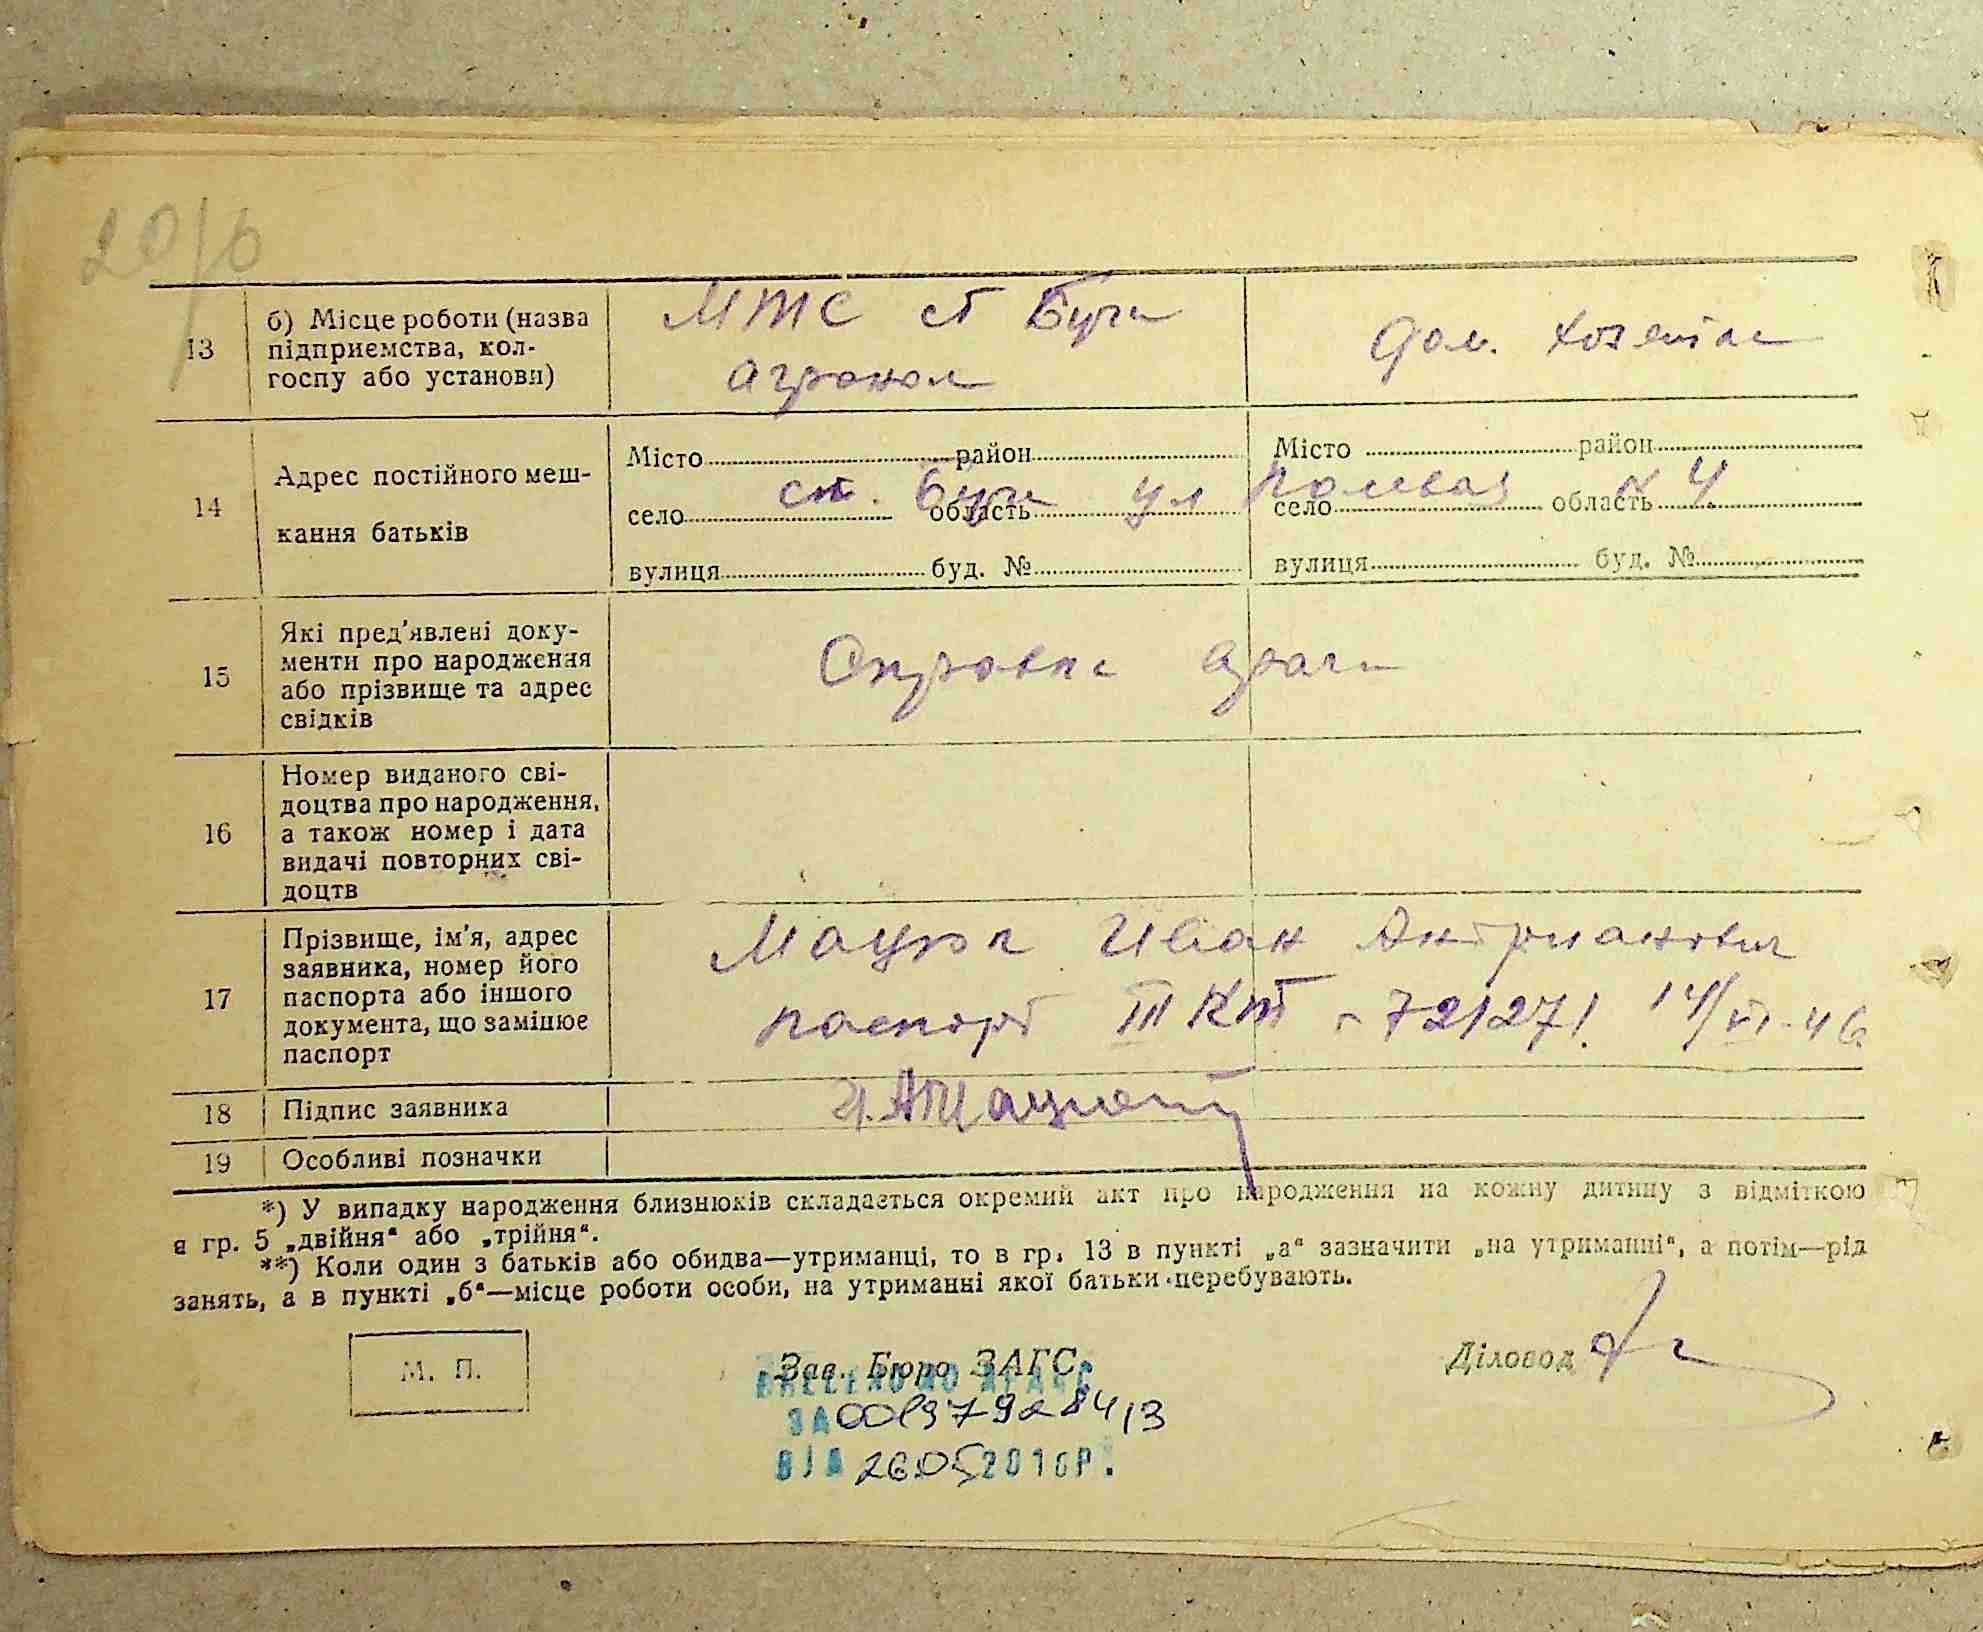 13
б) Місце роботи (назва
підприємства, кол-
госпу або установи)
МТС ст Буча
агроном
Дом. хозяйка
14
Адрес постійного меш-
кання батьків
Місто район
ст. Буча ул Полевая № 4
село область
вулиця буд. №
Місто район
село область
вулиця буд. №
15
Які пред'явлені доку-
менти про народження
або прізвище та адрес
свідків
Справка врача
16
Номер виданого сві-
доцтва про народження,
а також номер і дата
видачі повторних сві-
доцтв
17
Прізвище, ім'я, адрес
заявника, номер його
паспорта або іншого
документа, що заміцює
паспорт
Иван
паспорт III № 721271. 14/VI-46
18
Підпис заявника
19
Особливі позначки
*) У випадку народження близнюків складається окремий акт про народження на кожну дитину з відміткою
в гр. 5 „двійня“ або „трійня“.
**) Коли один з батьків або обидва—утриманці, то в гр. 13 в пункті „а“ зазначити „на утриманні“, а потім—рід
занять, а в пункті „б“—місце роботи особи, на утриманні якої батьки перебувають.
М. П.
Зав. Бюро ЗАГС
Діловод
ВНЕСЕНО ДО ДРАЦС
ЗА
ВІД 26.05 2016Р.